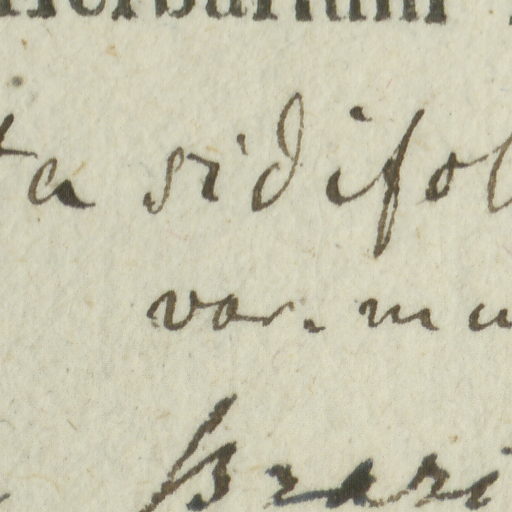 Herbarium
ta sidifol
var. mu
Brazi